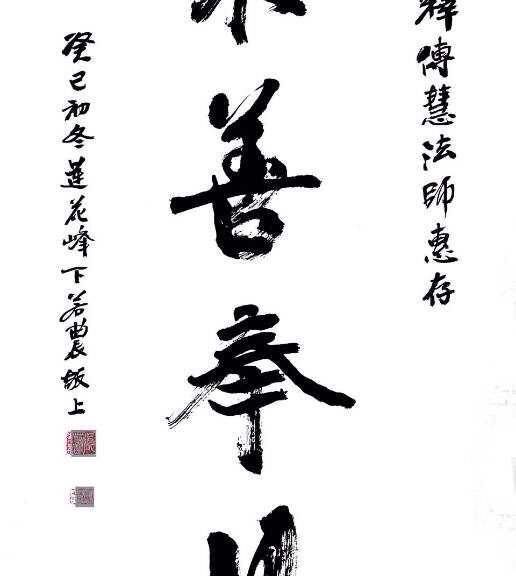 釋傳慧法師惠存
善奉
癸巳初冬蓮花峰下若農敬上